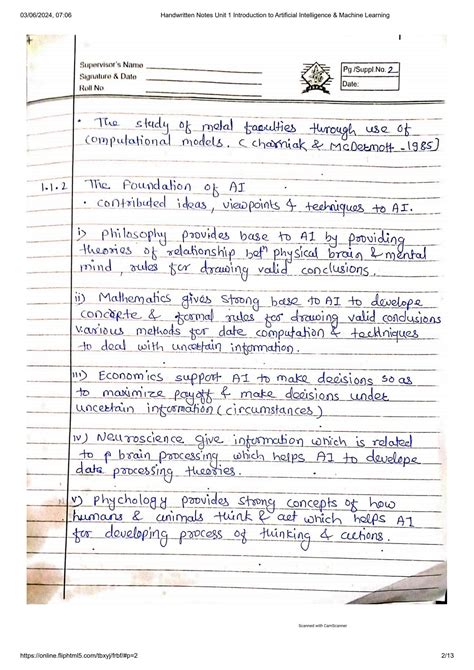 03/06/2024, 07:06 Handwritten Notes Unit 1 Introduction to Artificial Intelligence & Machine Learning
Supervisor's Name
Signature & Date
Roll No
Pg./Suppl.No. 2
Date:
• The study of metal faculties through use of
computational models. C charniak & McDermott - 1985)
1.1.2 The Foundation of AI
• contributed ideas, viewpoints & techniques to AI.
i) philosophy provides base to AI by providing
theories of relationship betn physical brain & mental
mind, rules for drawing valid conclusions.
ii) Mathematics gives strong base to AI to develope
concepte & formal rules for drawing valid conclusions
various methods for date computation & techniques
to deal with uncertain information.
iii) Economics support AI to make decisions so as
to maximize payoff & make decisions under
uncertain information (circumstances)
iv) Neuroscience give information which is related
to brain processing which helps AI to develope
data processing theories.
v) phychology provides strong concepts of how
humans & animals think & act which helps AI
for developing process of thinking & actions.
Scanned with CamScanner
https://online.fliphtml5.com/tbxyj/frbf/#p=2 2/13